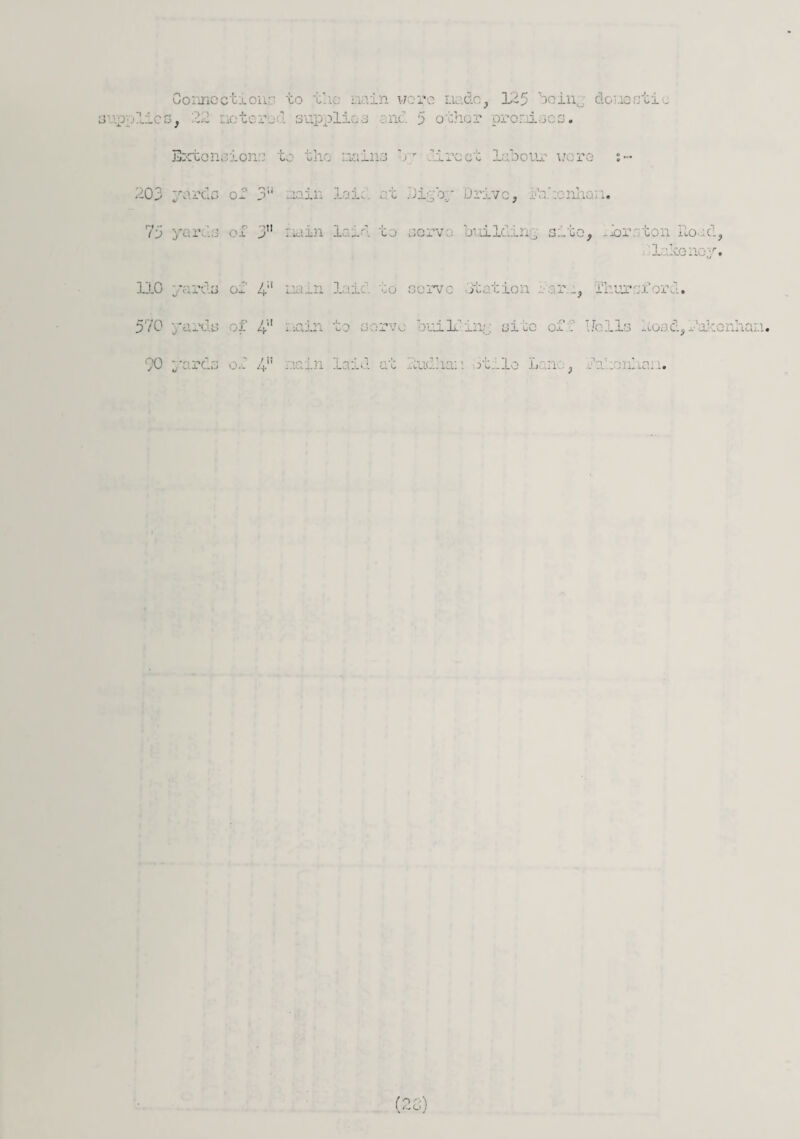 Connections to the main were made, 125 being domestic
supplies, 22 metered supplies and 5 other premises.
Extensions to the mains by direct labour were :-
203 yards of 3" main laid at Digby Drive, Fakenham.
75 yards of 3" main laid to serve building site, Morston Road,
Blakeney.
110 yards of 4" main laid to serve Station Farm, Thursford.
570 yards of 4" main to serve building site off Wells Road, Fakenham.
90 yards of 4" main laid at Rudham Stile Lane, Fakenham.
(28)